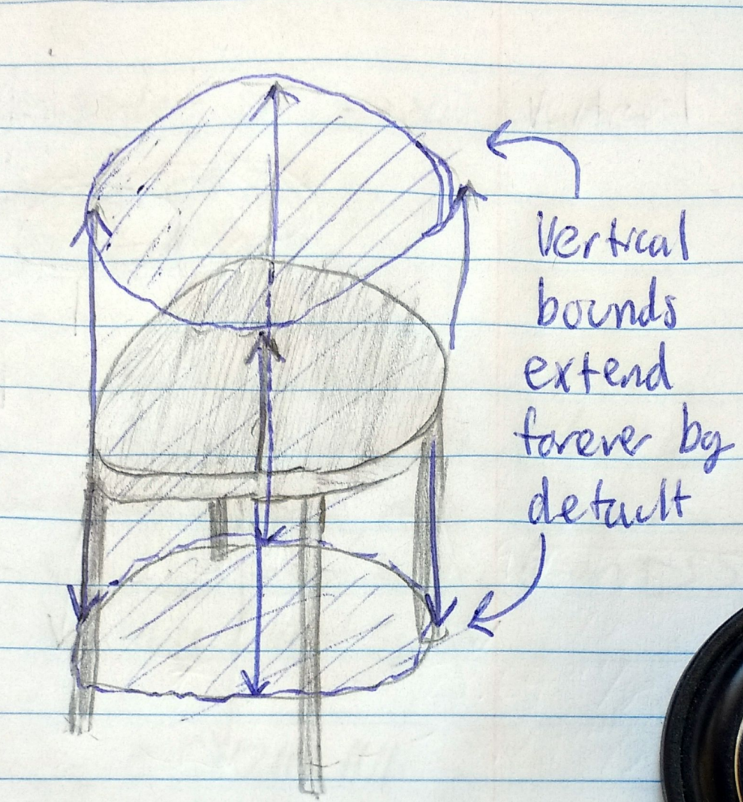 Vertical
bounds
extend
forever by
default